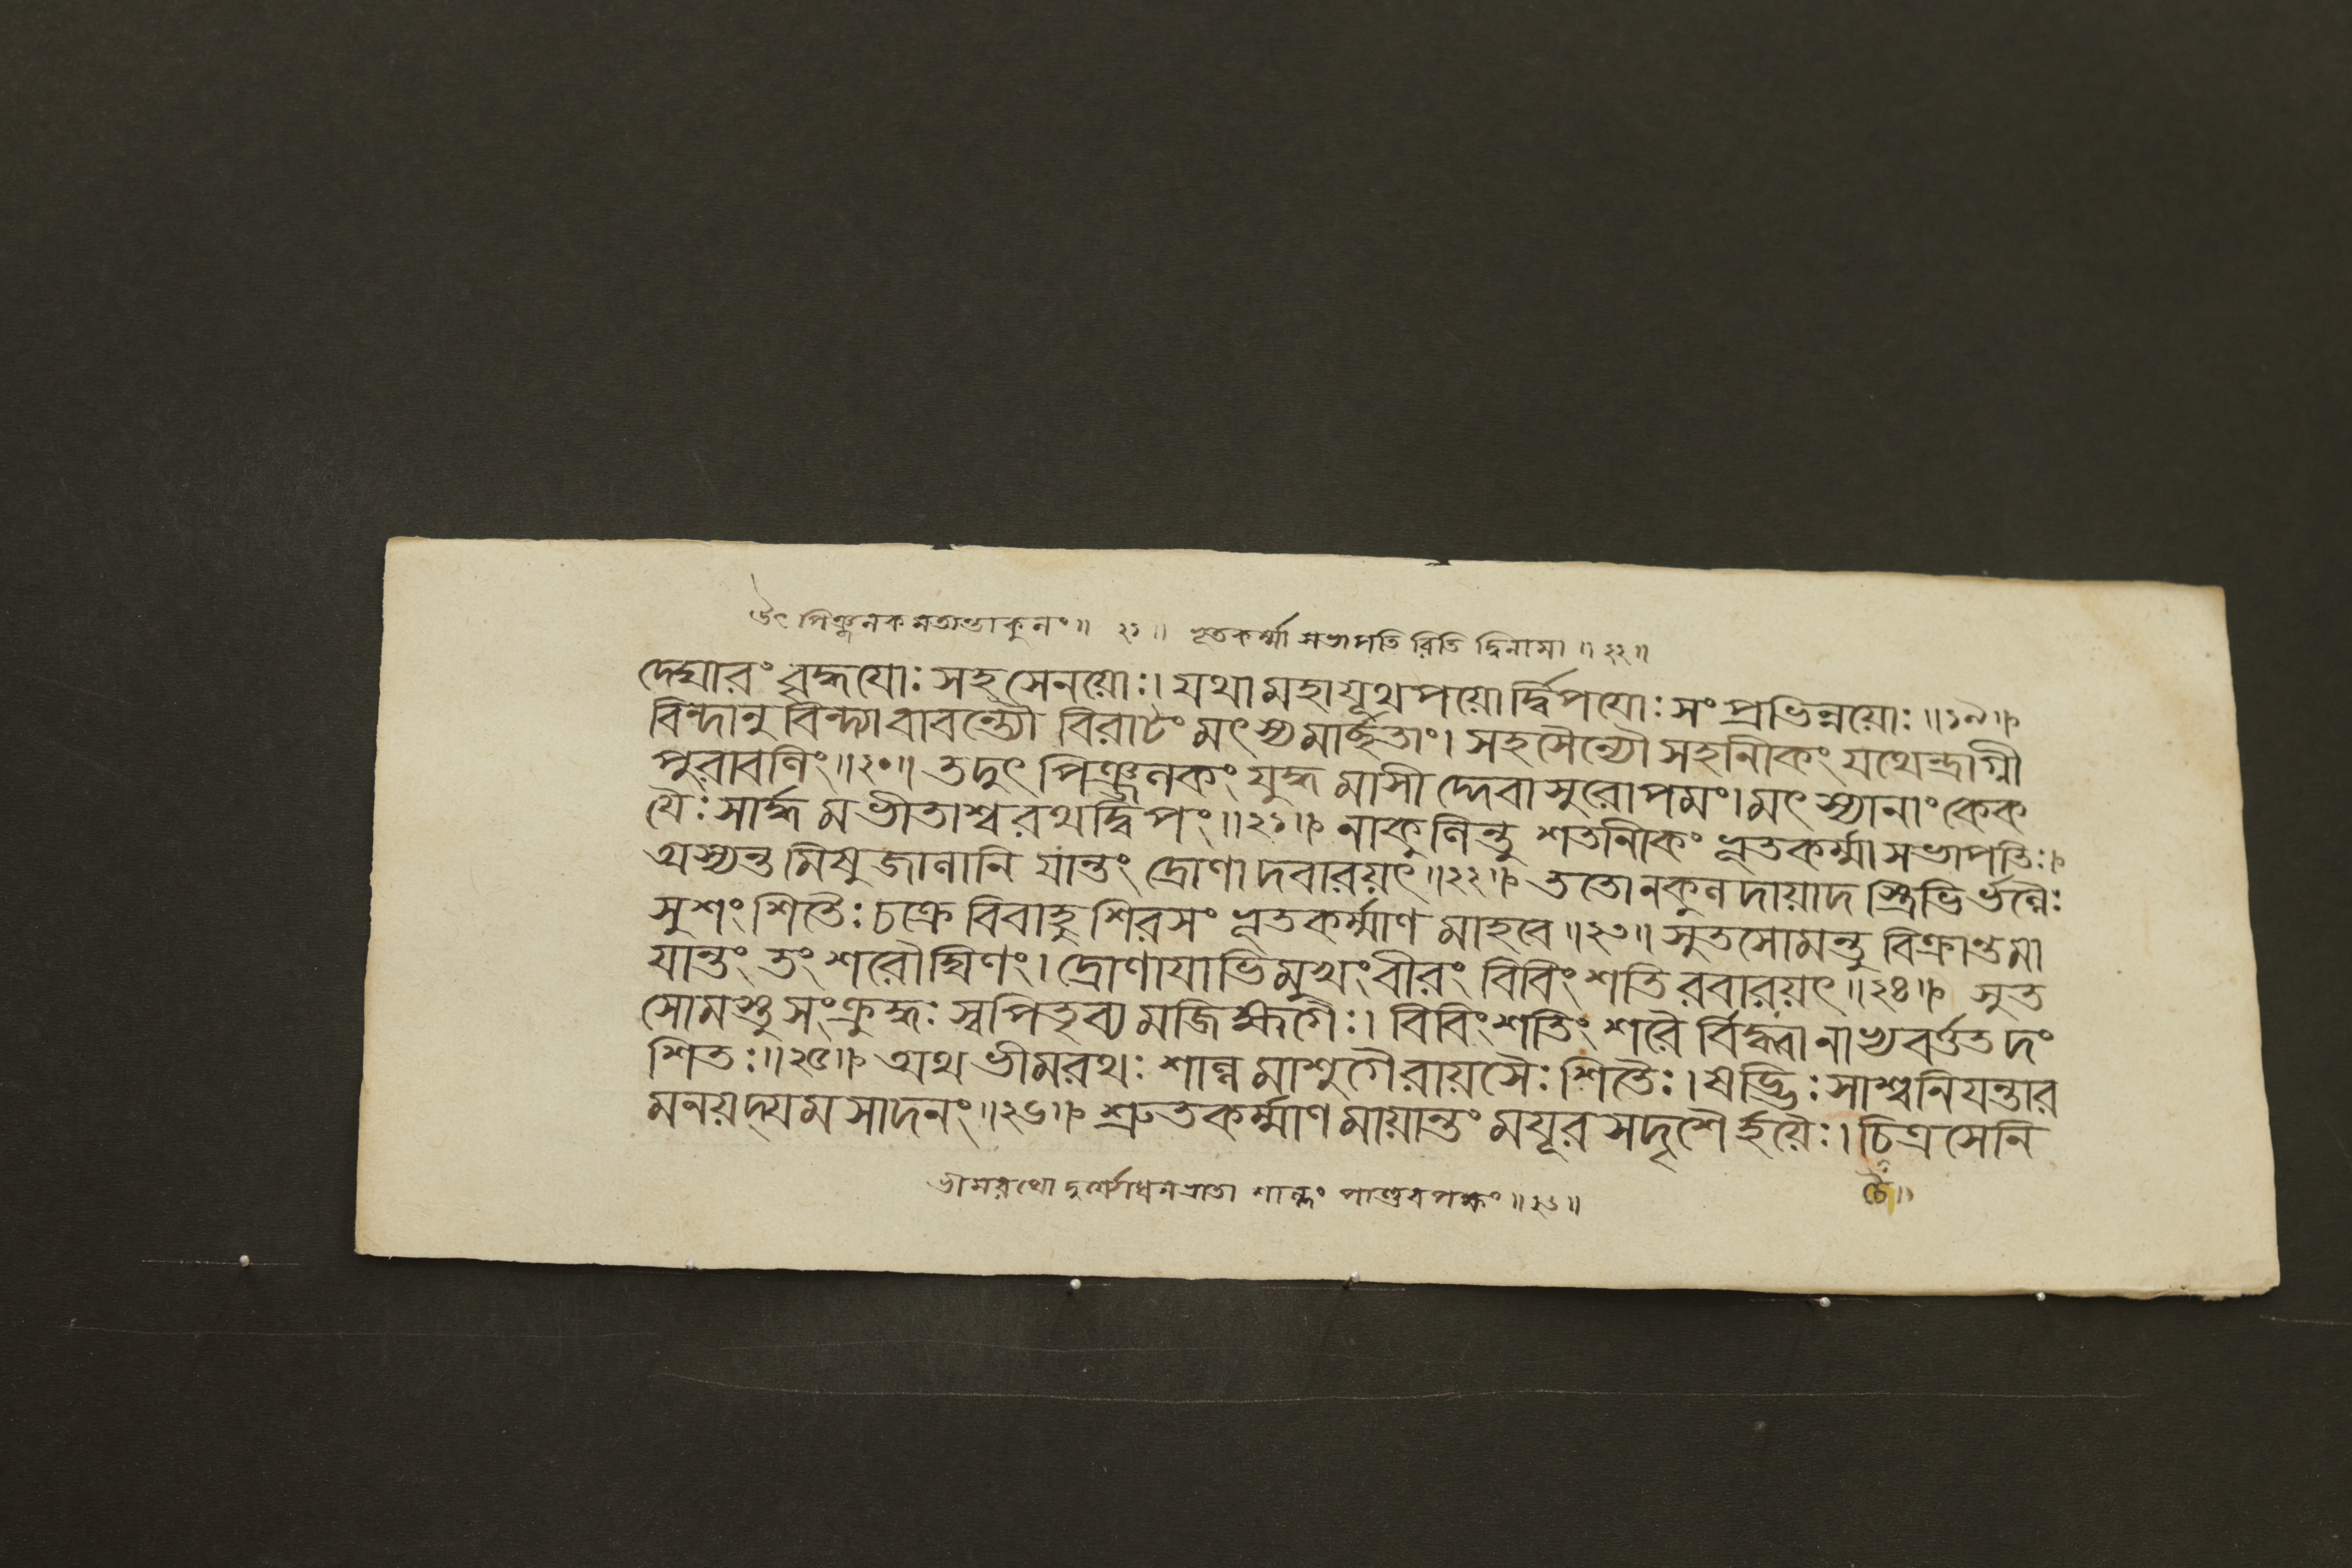 উৎপিঞ্জলকমত্যন্তাকুলং॥ ২১॥ ভূতকর্ম্মা সভাপতিরিতি দ্বিনামা॥ ২২॥
দেঘারং বৃদ্ধযোঃ সহসেনয়োঃ। যথা মহাযূথপয়োর্দ্বিপযোঃ সংপ্রভিন্নয়োঃ॥১৯॥
বিন্দানুবিন্দ্যাবাবন্ত্যৌ বিরাটং মৎস্যমার্চ্ছতাং। সহসৈন্যৌ সহানীকং যথেন্দ্রাগ্নী
পুরাবলিং॥২০॥ তদুৎপিঞ্জলকং যুদ্ধমাসীদ্দেবাসুরোপমং। মৎস্যানাং কেক
যৈঃ সার্দ্ধমভীতাশ্বরথদ্বিপং॥২১॥ নাকুলিন্তু শতানীকং ভূতকর্ম্মা সভাপতিঃ।
অস্যন্তমিষুজালানি যান্তং দ্রোণাদবারয়ৎ॥২২॥ ততো নকুলদায়াদস্ত্রিভির্ভল্লৈঃ
সুশংশিতৈঃ চক্রে বিবাহুশিরসং ভূতকর্ম্মাণমাহবে॥২৩॥ সুতসোমন্তু বিক্রান্তমা
যান্তং তং শরৌঘিণং। দ্রোণাযাভিমুখং বীরং বিবিংশতিরবারয়ৎ॥২৪॥ সুত
সোমস্তু সংক্রুদ্ধঃ স্বপিতৃব্যমজিহ্মগৈঃ। বিবিংশতিং শরৈর্বিদ্ধ্বা নাভ্যবর্ত্তত দং
শিতঃ॥২৫॥ অথ ভীমরথঃ শাল্বমাশুগৈরায়সৈঃ শিতৈঃ। ষড্ভিঃ সাশ্বনিযন্তার
মনয়দ্যমসাদনং॥২৬॥ শ্রুতকর্ম্মাণমায়ান্তং মযূরসদৃশৈর্হয়ৈঃ। চিত্রসেনি
ভীমরথো দুর্য্যোধনভ্রাতা শাল্বং পাণ্ডবপক্ষং॥২৬॥